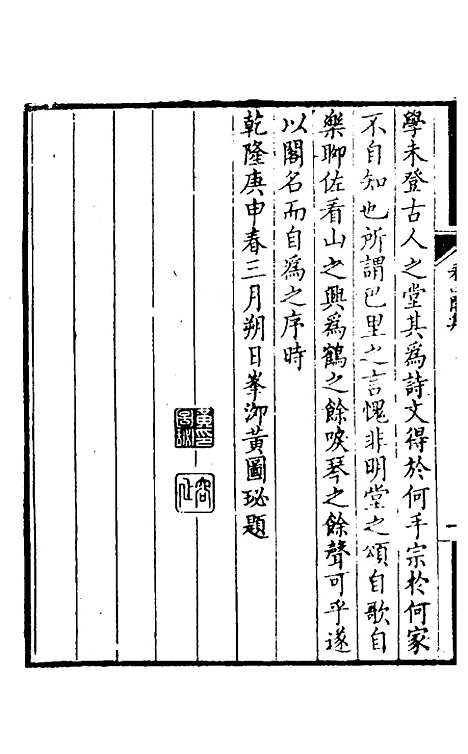 學未登古人之堂其為詩文得於何手宗於何家
不自知也所謂巴里之言愧非明堂之頌自歌自
樂聊佐看山之興為鶴之餘唳琴之餘聲可乎遂
以閣名而自為之序時
乾隆庚申春三月朔日峯泖黃圖珌題
看山閣集
一